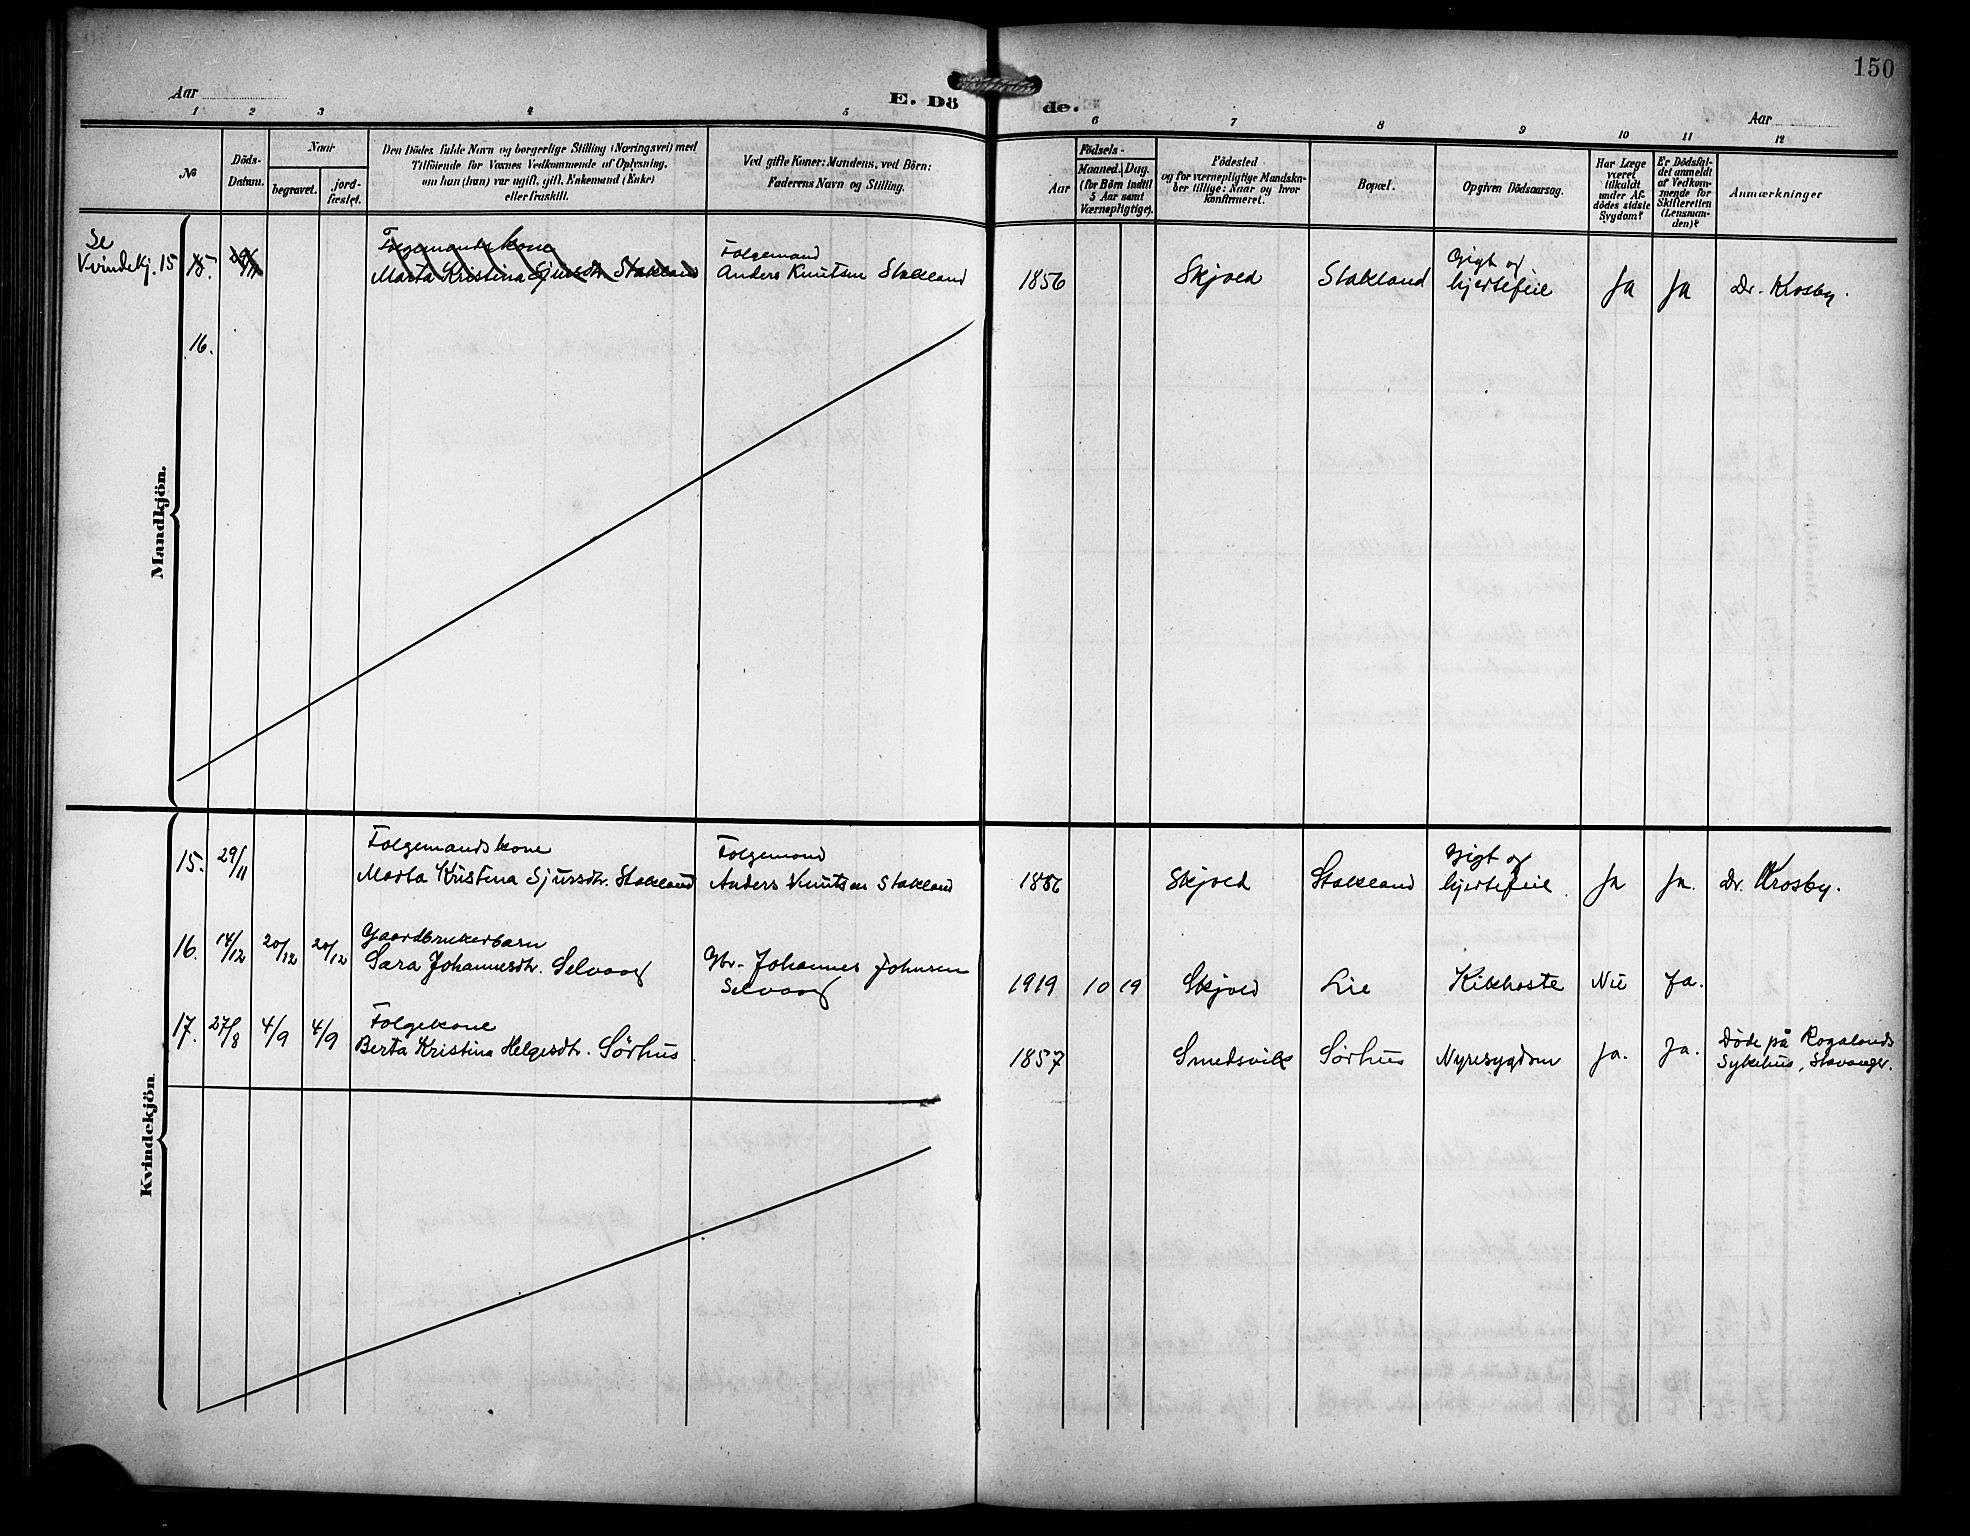 150
Aar
E. Dö
de.
Aar
1 2 3 4 5 6 7 8 9 10 11 12
№
Döds-
Datum.
Naar
begravet.
jord-
fæstet.
Den Dödes fulde Navn og borgerlige Stilling (Næringsvei) med
Tilföiende for Voxnes Vedkommende af Oplysning,
om hun (han) var ugift, gift, Enkemand (Enke)
eller fraskilt.
Ved gifte Koner: Mandens, ved Börn:
Faderens Navn og Stilling.
Aar
Födsels-
Maaned.
Dag.
(for Börn indtil
5 Aar samt
Værnepligtige).
Födested
og for værnepligtige Mandska-
ber tillige: Naar og hvor
konfirmeret.
Bopæl.
Opgiven Dödsaarsag.
Har Læge
været
tilkaldt
under Af-
dödes sidste
Sygdom?
Er Dödsfal-
det anmeldt
af Vedkom-
mende for
Skifteretten
(Lensman-
den)?
Anmærkninger
Mandkjön.
Se
Kvindekj. 15
15. 29/11
Folgemandskone
Marta Kristina Sjursdtr. Stakland
Folgemand
Anders Knutsen Stakland
1856
Skjold
Stakland
Gigt og
hjertefeil
Ja
Ja
Dr. Krosby.
16.
Kvindekjön
15. 29/11
Folgemandskone
Marta Kristina Sjursdtr. Stakland
Folgemand
Anders Knutsen Stakland
1856
Skjold
Stakland
Gigt og
hjertefeil.
Ja
Ja.
Dr. Krosby.
16. 14/12 20/12 20/12
Gaardbrukerbarn
Sara Johannesdtr. Selvaag
Gbr. Johannes Johnsen
Selvaag
1919 10 19
Skjold
Lie
Kikhoste
Nei
Ja.
17. 27/8 4/9 4/9
Folgekone
Berta Kristina Helgesdtr. Sørhus
1857
Smedsvik
Sørhus
Nyresygdom
Ja.
Ja.
Døde på Rogalands
Sykehus, Stavanger.